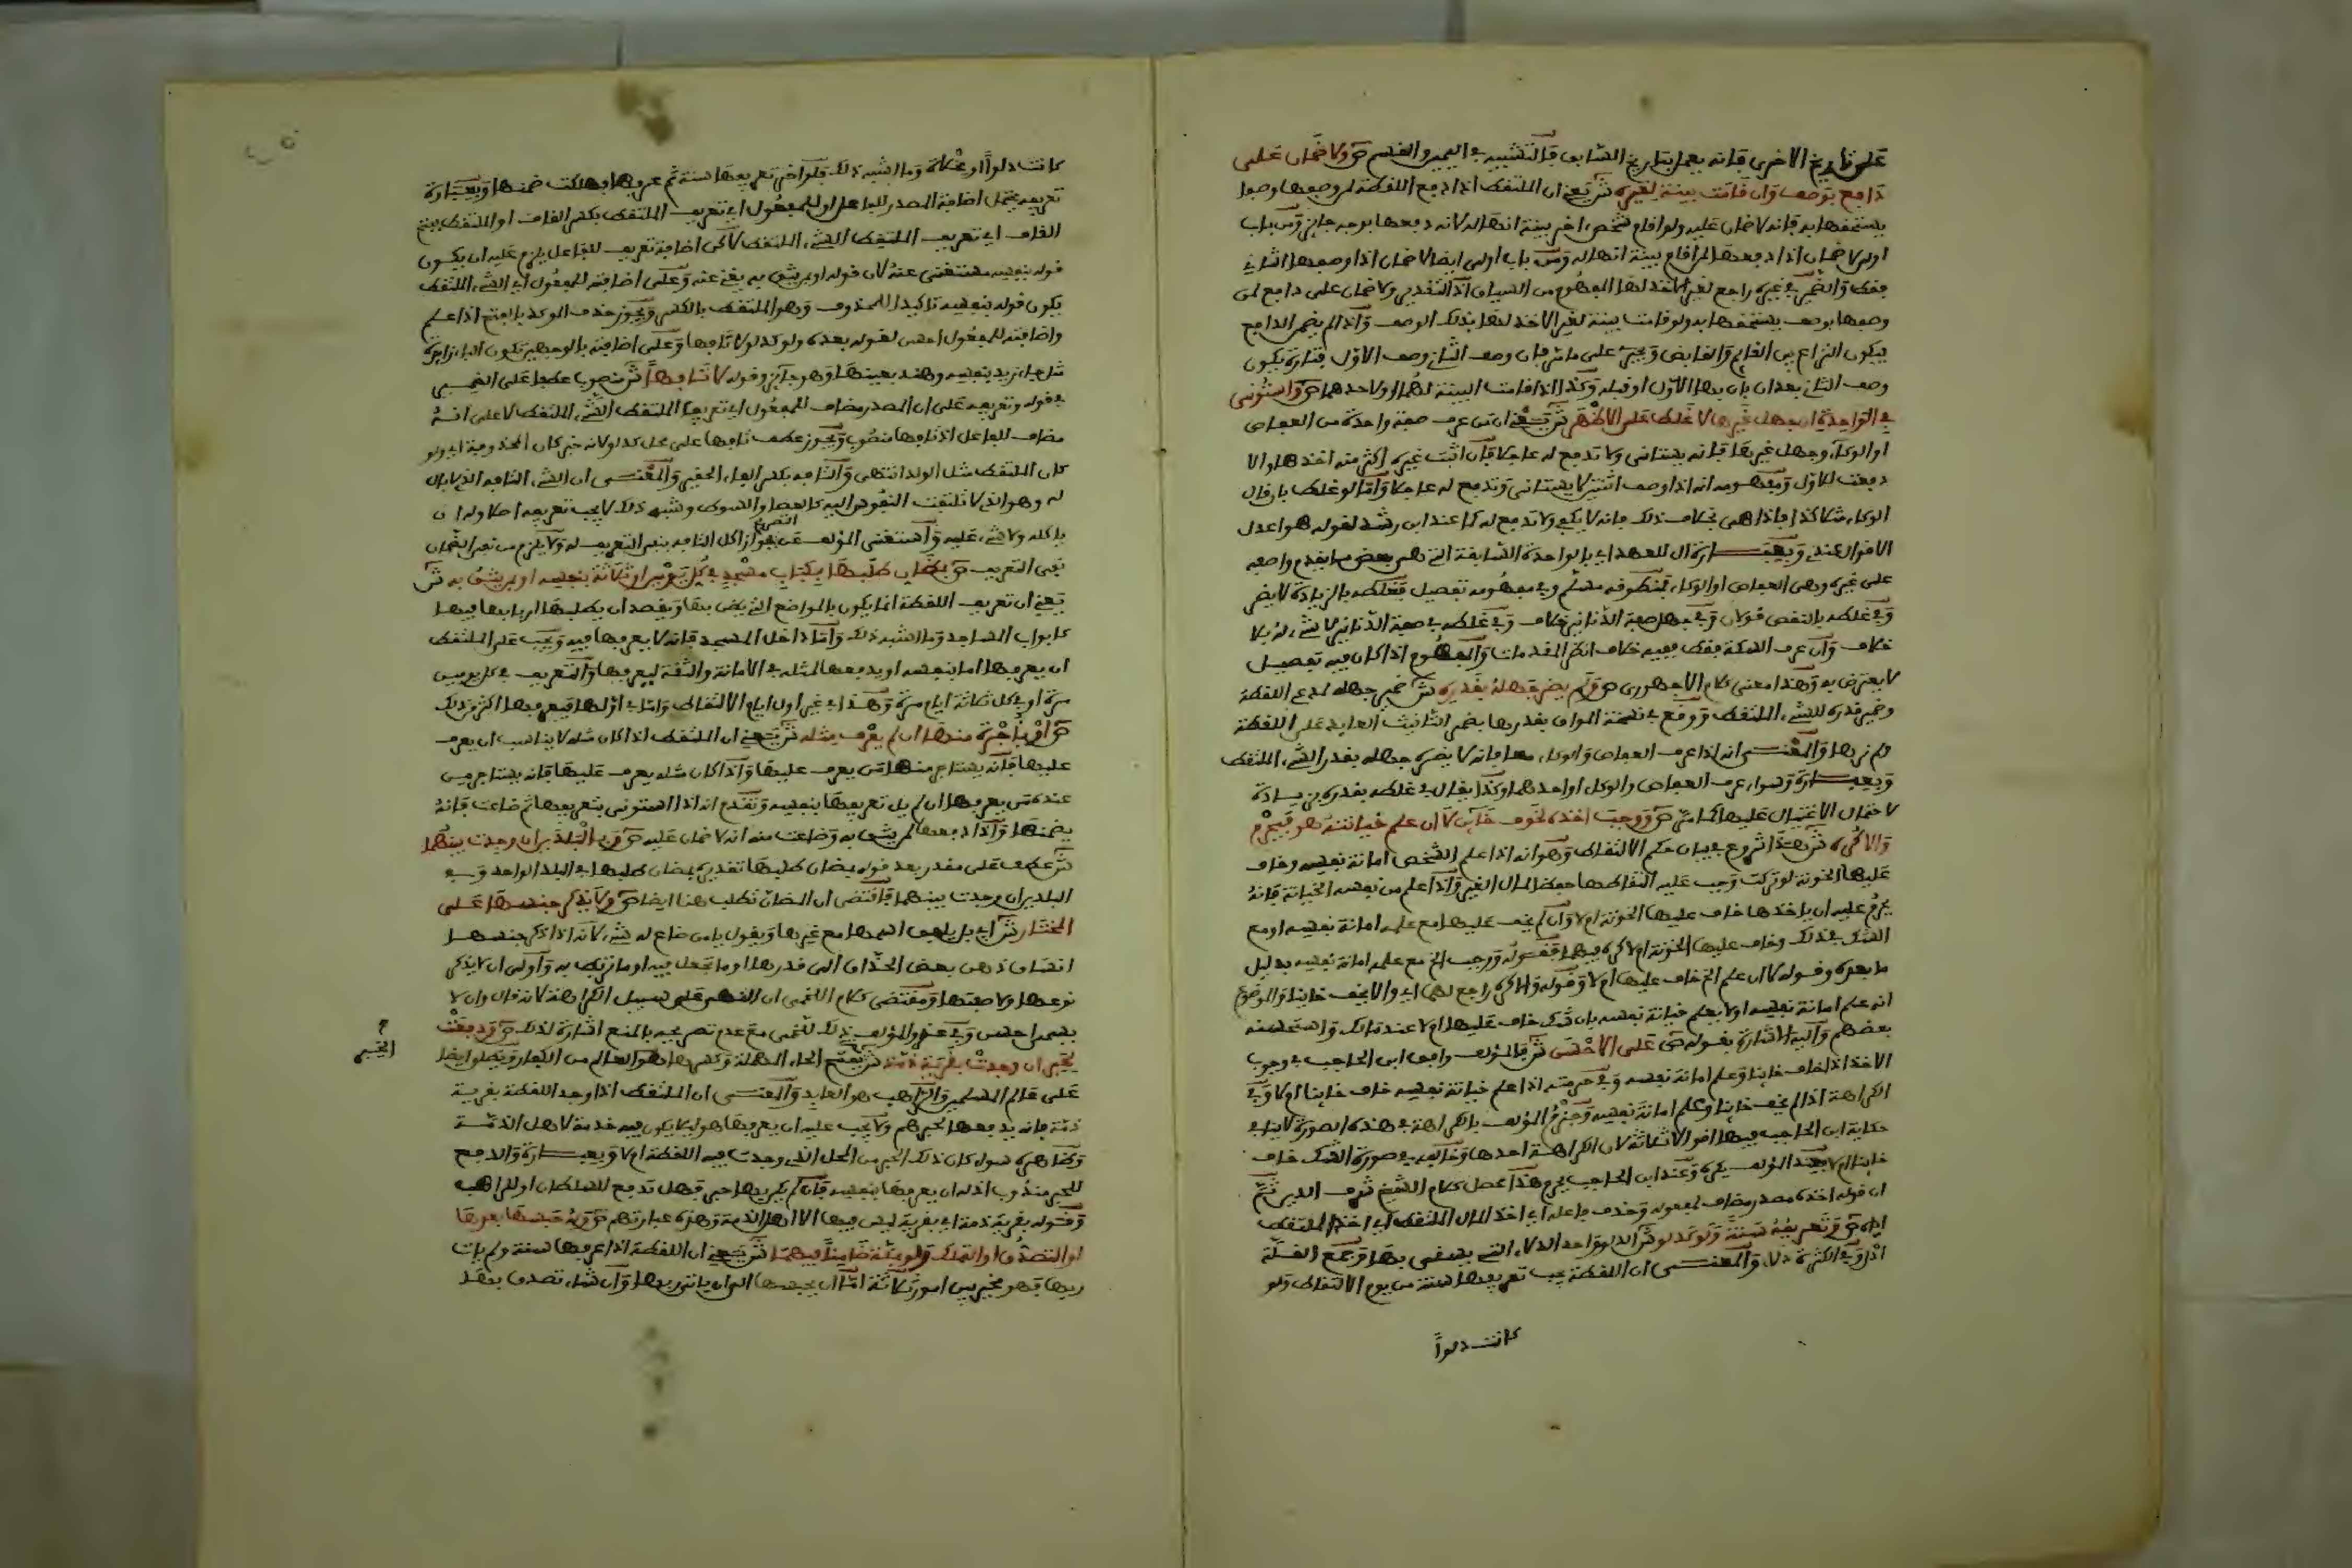 على تاريخ الاخرى فانه يعمل بتاريخ السابق فالتشبيه في اليمين والقسم ص ولا ضمان على
دافع بوصف وان قامت بينة لغيره ش يعني ان الملتقط اذا دفع اللقطة لمن وصفها وصفا
يستحقها به فانه لا ضمان عليه ولو اقام شخص اخر بينة انها له لانه دفعها بوجه جايز ومن باب
اولى لا ضمان اذا دفعها لمن اقام بينة انها له ومن باب اولى ايضا لا ضمان اذا وصفها الثاني
فقط والضمير في غيره راجع لغير الاخذ لها المفهوم من السياق اذ التقدير ولا ضمان على دافع لمن
وصفها بوصف يستحقها به ولو قامت بينة لغير الاخذ لها بذلك الوصف واذا لم يضمن الدافع
فيكون النزاع بين القايم والقابض ويجري على ما مر فان وصف الثاني وصف الاول فتارة يكون
وصف الثاني بعد ان بان بها الاول او قبله وكذا اذا قامت البينة لهما او لاحدهما ص واستوني
في الواحدة ان جهل غيرها لا غلط على الاظهر ش يعني ان من عرف صفة واحدة من العفاص
او الوكاء وجهل غيرها فانه يستاني ولا تدفع له عاجلا فان اثبت غيره اكثر منه اخذها والا
دفعت للاول ومفهومه انه اذا وصف اثنتين لا يستانى وتدفع له عاجلا واما لو غلط بان قال
الوكاء مثلا كذا فاذا هي بخلاف ذلك فانه لا يكفي ولا تدفع له كما عند ابن رشد لقوله هو اعدل
الاقوال عندي وبعبارة ال للعهد اي بالواحدة السابقة التي هي بعض ما يقدم واصفه
على غيره وهي العفاص او الوكاء فمنطوقه مسلم وفي مفهومه تفصيل فغلطه بالزيادة لا يضر
وفي غلطه بالنقص قولان وفي جهل صفة الدنانير خلاف وفي غلطه في صفة الدنانير لا شيء له بلا
خلاف وان عرف السكة فقط ففيه خلاف انظر المقدمات والمفهوم اذا كان فيه تفصيل
لا يعترض به وهذا معنى كلام الاجهوري ص ولم يضر جهله بقدره ش ضمير جهله لمدعي اللقطة
وضمير قدره للشيء الملتقط ووقع في نسخة المواق بقدرها بضمير التانيث العايد على اللقطة
ولم نرها والمعنى انه اذا عرف العفاص والوكاء معا فانه لا يضره جهله بقدر الشيء الملتقط
وبعبارة وسواء عرف العفاص والوكاء او احدهما وكذا يقال في غلطه بقدره بزيادة
لاحتمال الاغتيال عليها كما مر ص ووجب اخذه لخوف خائن لا ان علم خيانته هو فيحرم
والا كره ش هذا شروع في بيان حكم الالتقاط وهو انه اذا علم الشخص امانة نفسه وخاف
عليها الخونة لو تركت وجب عليه التقاطها حفظا لمال الغير واذا علم من نفسه الخيانة فانه
يحرم عليه ان ياخذها خاف عليها الخونة ام لا وان لم يخف عليها مع علم امانة نفسه او مع
الشك في ذلك وخاف عليها الخونة ام لا كره فيهما فقوله ووجب الخ مع علم امانة نفسه بدليل
ما بعده وقوله لا ان علم الخ خاف عليها ام لا وقوله والا كره راجع لهما اي والا يخف خاينا والموضوع
انه علم امانة نفسه او لا يعلم خيانة نفسه بان شك خاف عليها ام لا عند مالك واستحسنه
بعضهم واليه الاشارة بقوله ص على الاحسن ش فالمؤلف وافق ابن الحاجب في وجوب
الاخذ اذا خاف خاينا وعلم امانة نفسه وفي حرمته اذا علم خيانة نفسه خاف خاينا ام لا وفي
الكراهة اذا لم يخف خاينا وعلم امانة نفسه وجزم المؤلف بالكراهة في هذه الصورة لا ينافي
حكاية ابن الحاجب فيها اقوالا ثلاثة لان الكراهة احدها وخالفه في صورة الشك خاف
خاينا ام لا فعند المؤلف يكره وعند ابن الحاجب يحرم هذا محصل كلام الشيخ شرف الدين ثم
ان قوله اخذه مصدر مضاف لمفعوله وحذف فاعله اي اخذ المال الملتقط اي اخذ الملتقط
اياه ص وتعريفه سنة ولو كدلو ش الدلو واحد الدلاء التي يستقى بها وجمع القلة
ادل وفي الكثرة دلاء والمعنى ان اللقطة يجب تعريفها سنة من يوم الالتقاط ولو
كانت دلوا
كانت دلوا او مخلاة وما اشبه ذلك فلو اخر تعريفها سنة ثم عرفها فهلكت ضمنها وبعبارة
تعريفه يحتمل اضافة المصدر للفاعل او للمفعول اي تعريف الملتقط بكسر القاف او الملتقط بفتح
القاف اي تعريف الملتقط الشيء الملتقط لاكن اضافة تعريف للفاعل يلزم عليه ان يكون
قوله بنفسه مستغنى عنه لان قوله او بمن يثق به يغني عنه وعلى اضافته للمفعول اي الشيء الملتقط
يكون قوله بنفسه تاكيدا للمحذوف وهو الملتقط بالكسر ويجوز حذف الموكد بالفتح اذا علم
واضافته للمفعول احسن لقوله بعده ولو كدلو لا تافها وعلى اضافته بالوجهين تكون الباء زايدة
مثل جاء زيد بنفسه وهند بعينها وهو جايز وقوله لا تافها ش منصوب عطفا على الضمير
في قوله وتعريفه على ان المصدر مضاف للمفعول اي تعريف الملتقط الشيء الملتقط لا على انه
مضاف للفاعل اذ تافها منصوب ويجوز عطف تافها على محل كدلو لانه خبر كان المحذوفة اي ولو
كان الملتقط مثل الولد انتهى والتافه بكسر الفاء الحقير والمعنى ان الشيء التافه الذي لا بال
له وهو الذي لا تلتفت النفوس اليه كالعصا والسوط وشبه ذلك لا يجب تعريفه اصلا وله ان
ياكله ولا شيء عليه واستغنى المؤلف عن جواز اكل التافه بنفي التعريف له ولا يلزم من نفي الضمان
نفي التعريف ص بمظان طلبها بكباب مسجد في كل يومين او ثلاثة بنفسه او بمن يثق به ش
يعني ان تعريف اللقطة انما يكون بالمواضع التي يظن بها ويقصد ان يطلبها اربابها فيها
كابواب المساجد وما اشبه ذلك واما داخل المسجد فانه لا يعرفها فيه ويجب على الملتقط
ان يعرفها اما بنفسه او يدفعها لمثله في الامانة والثقة ليعرفها والتعريف في كل يومين
مرة او في كل ثلاثة ايام مرة وهذا في غير اول ايام الالتقاط واما في اولها فيعرفها اكثر من ذلك
ص او باجرة منها ان لم يعرف مثله ش يعني ان الملتقط اذا كان مثله لا يناسب ان يعرف
عليها فانه يستاجر منها من يعرف عليها واذا كان مثله يعرف عليها فانه يستاجر من
عنده من يعرفها ان لم يل تعريفها بنفسه وتقدم انه اذا استونى بتعريفها ثم ضاعت فانه
يضمنها واذا دفعها لمن يثق به وضاعت منه انه لا ضمان عليه ص وفي البلدين ان وجدت بينهما
ش عطف على مقدر بعد قوله بمظان طلبها تقديره بمظان طلبها في البلد الواحد وفي
البلدين ان وجدت بينهما فاقتضى ان المظان تطلب هنا ايضا ص ولا يذكر جنسها على
المختار ش اي بل يلفق اسمها مع غيرها ويقول يا من ضاع له شيء لانه اذا ذكر جنسها
انساق ذهن بعض الحذاق الى قدرها او ما تجعل فيه او ما تربط به واولى ان لا يذكر
نوعها ولا صفتها ومقتضى كلام اللخمي ان النهي على سبيل الكراهة لانه قال وان لا
يسمى احسن وفي عزو المؤلف ذلك للخمي مع عدم تصريحه بالمنع اشارة لذلك ص ودفعت
لحبر ان وجدت بقرية ذمة ش بفتح الحاء المهملة وكسرها هو العالم من الكفار ويطلق ايضا
على عالم المسلمين والراهب هو العابد والمعنى ان الملتقط اذا وجد اللقطة بقرية
ذمة فانه يدفعها لحبرهم ولا يجب عليه ان يعرفها هو ليلا يكون فيه خدمة لاهل الذمة
وظاهره سواء كان ذلك الحبر من المحل الذي وجدت فيه اللقطة ام لا وبعبارة والدفع
للحبر مندوب اذ له ان يعرفها بنفسه فان لم يكن فيها حبر فهل تدفع للسلطان او للراهب
وقوله بقرية ذمة اي بقرية ليس فيها الا اهل الذمة وهذه عبارتهم ص وله حبسها بعدها
او التصدق او التملك ولو بمكة ضامنا فيهما ش يعني ان اللقطة اذا عرفها سنة ولم يات
ربها فهو مخير بين امور ثلاثة اما ان يحبسها الى ان ياتي ربها وان شاء تصدق بها
الحبر